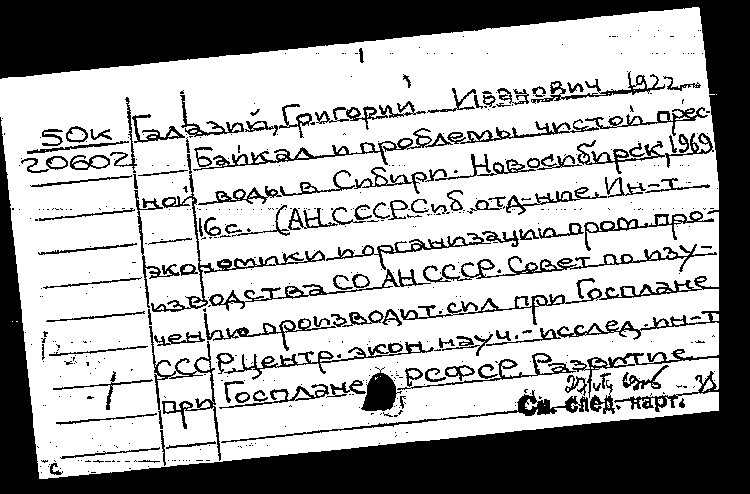 Галазий, Григорий Иванович 1922
50к
20602
Байкал и проблемы чистой прес-
ной воды в Сибири. Новосибирск, 1969
16с. (АН СССР Сиб. отд-ние. Ин-т
экономики и организации пром. про-
изводства СО АН СССР. Совет по изу-
чению производит. сил при Госплане
СССР. Центр. экон. науч.-исслед. ин-т
при Госплане РСФСР. Развитие
См. след. карт.
с